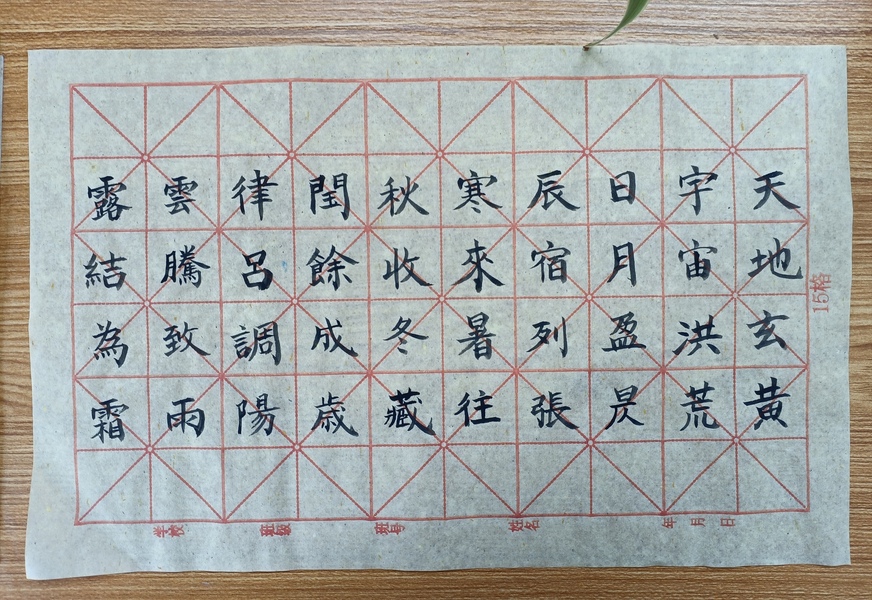 天地玄黄
宇宙洪荒
日月盈昃
辰宿列張
寒來暑往
秋收冬藏
閏餘成歳
律呂調陽
雲騰致雨
露結為霜
15格
年 月 日
姓名
班号
班级
学校